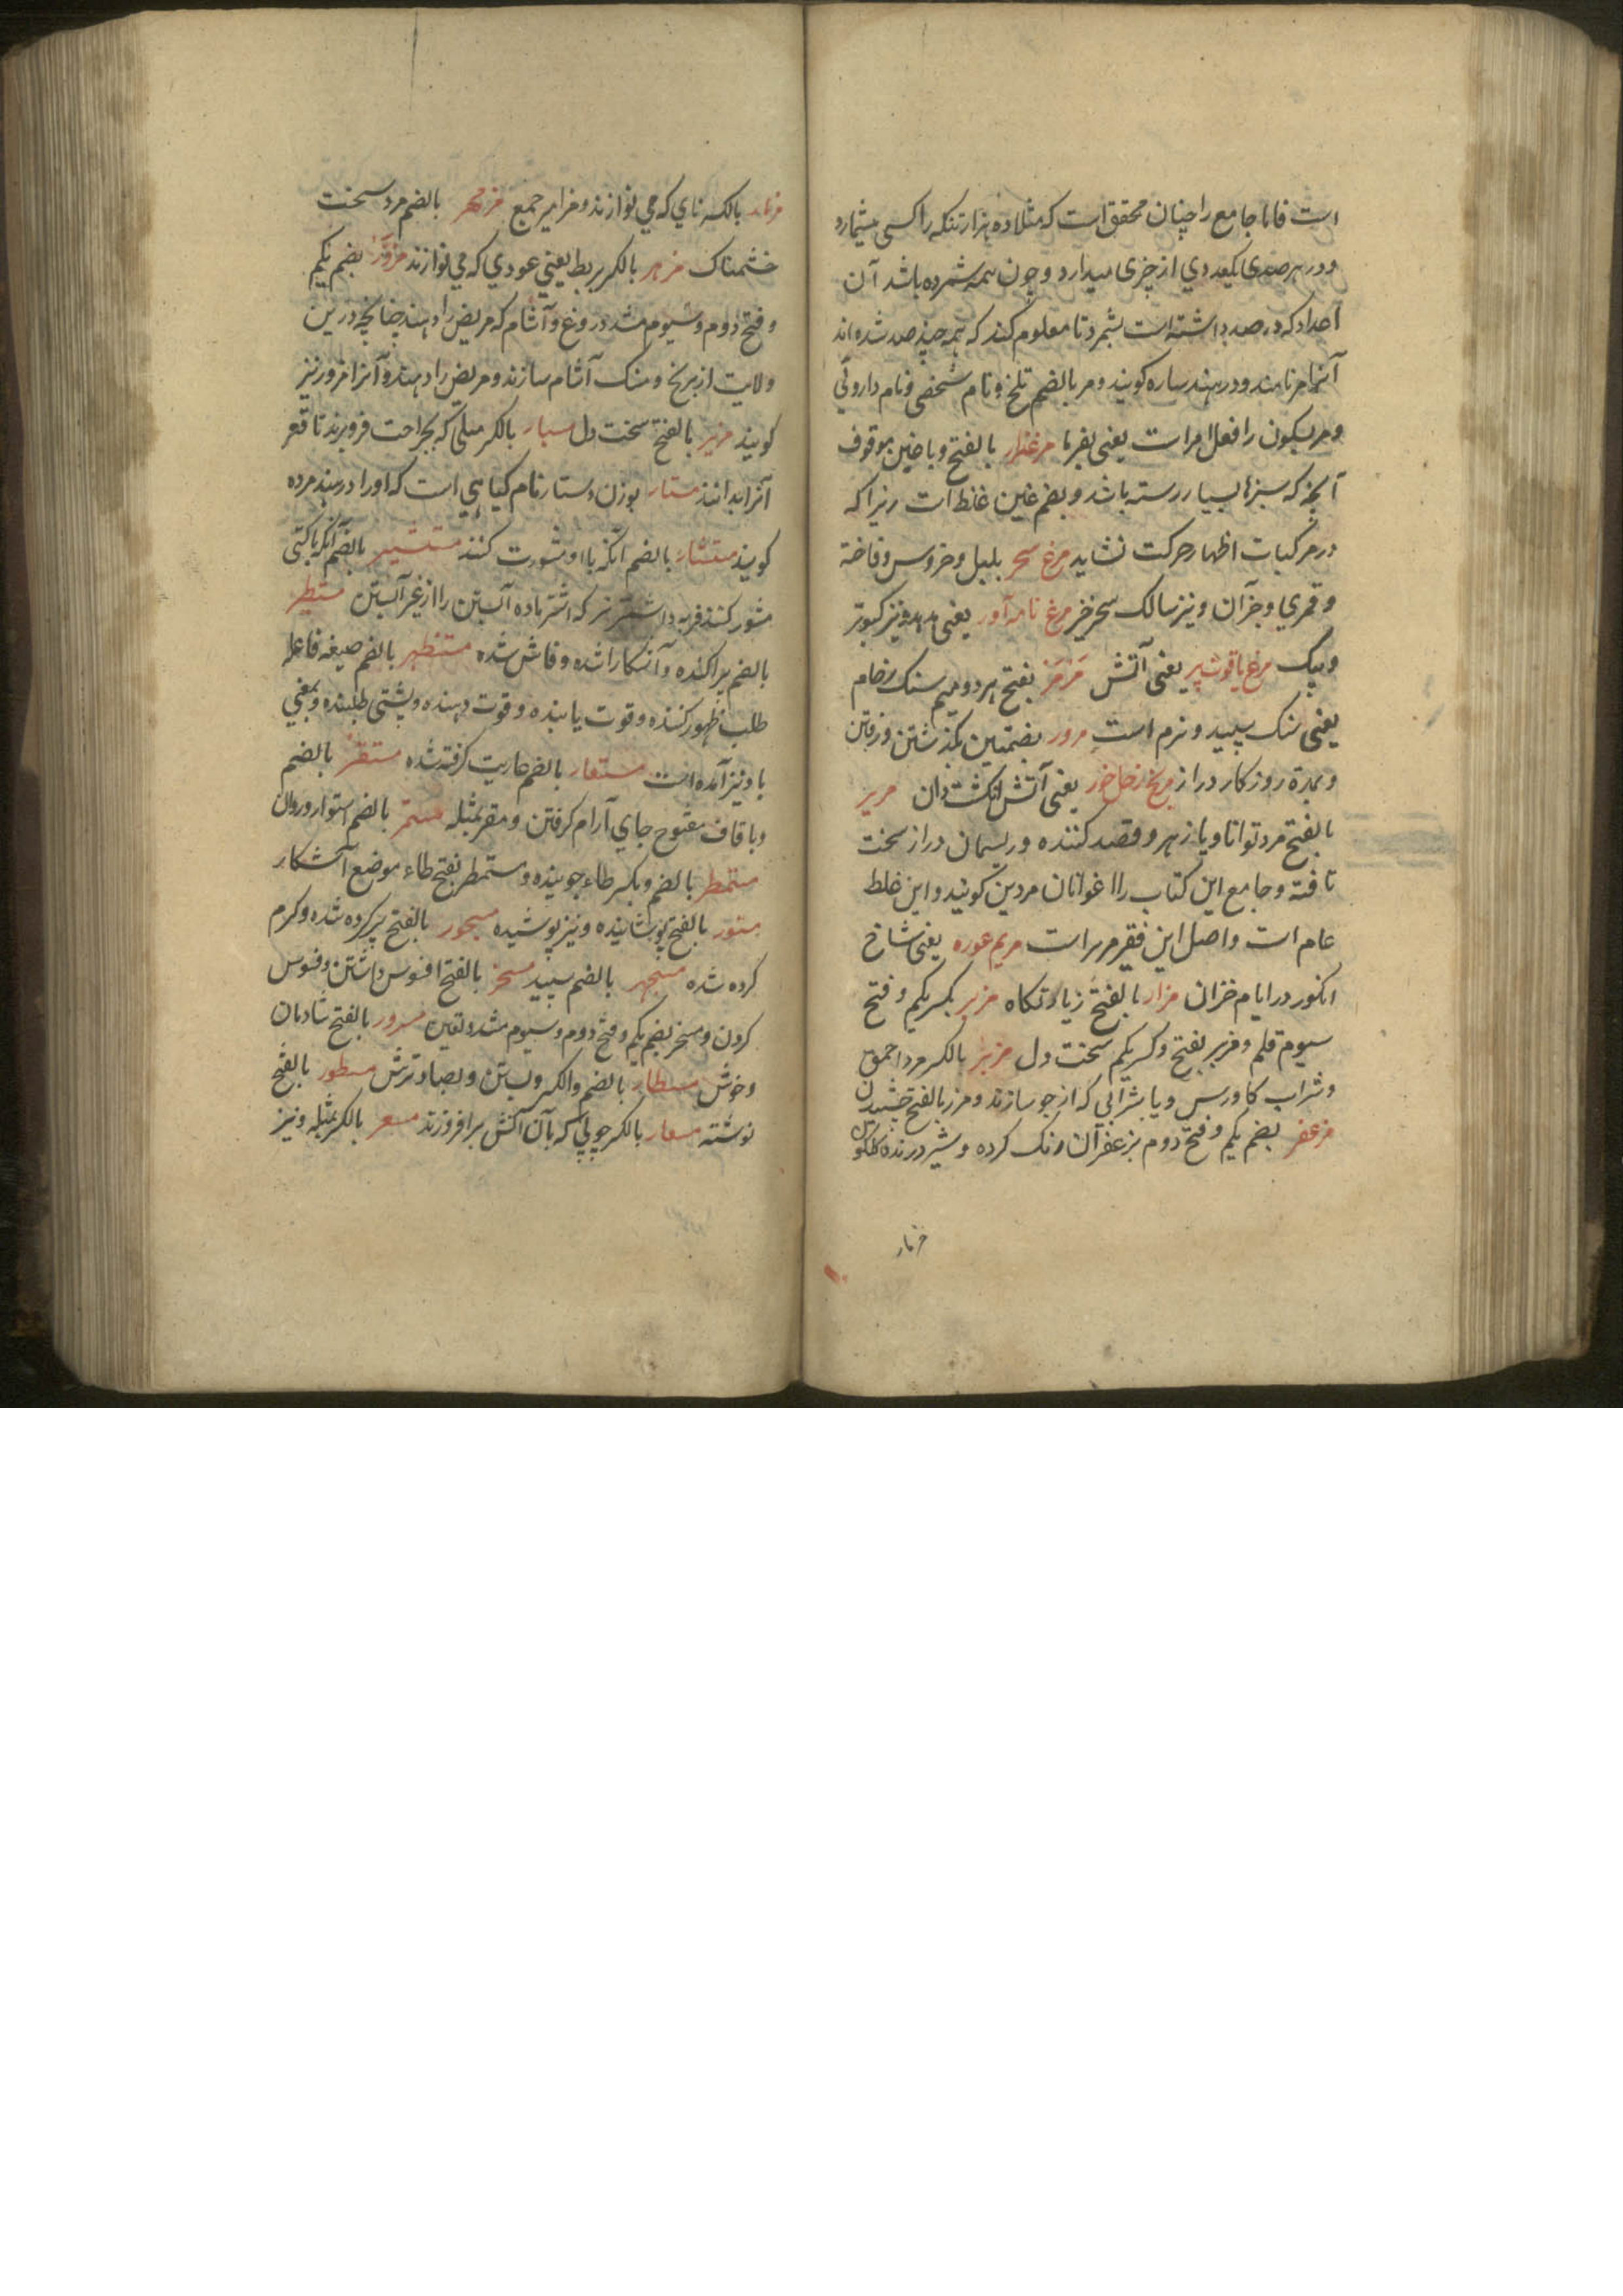 است فاما جامع را چنان محقق است که مثلا ده هزار تنکه را کسی میشمارد
و در هر صدی یکعددی از چیزی میدارد و چون همه شمرده باشد آن
اعداد که در صد داشته است بشمرد تا معلوم کند که همه چند صد شده اند
آنرا مر نامند و در هند ساره کویند و مر بالضم تلخ و نام شخصی و نام داروئی
و مر بسکون را فعل امر است یعنی بفرما مرغزار بالفتح و با غین موقوف
آنجا که سبزها بسیار رسته باشد و بضم غین غلط است زیرا که
در مرکبات اظهار حرکت نشاید مرغ سحر بلبل و خروس و فاخته
و قمری و جز آن و نیز سالک سحرخیز مرغ نامه آور یعنی هدهد و نیز کبوتر
و پیک مرغ یاقوت پر یعنی آتش مرمر بفتح هر دو میم سنک رخام
یعنی سنک سپید و نرم است مرور بضمتین بکذشتن و رفتن
و بمدة روزکار دراز مریخ زحل خور یعنی آتش انکشت دان مریر
بالفتح مرد توانا و با زهر و قصد کننده و ریسمان دراز سخت
تافته و جامع این کتاب را اغوانان مردین کویند و این غلط
عام است و اصل این فقیر مریر است مریم عوره یعنی شاخ
انکور در ایام خزان مزار بالفتح زیارتکاه مزبر بکسر یکم و فتح
سیوم قلم و مزبر بفتح و کسر یکم سخت دل مزیر بالکسر مرد احمق
و شراب کاورس و یا شرابی که از جو سازند و مزر بالفتح چشیدن
مزعفر بضم یکم و فتح دوم بزعفران رنک کرده و شیر درنده
مزمار
مزمار بالکسر نای که می نوازند و مزامیر جمع مزمهر بالضم مرد سخت
خشمناک مزهر بالکسر بربط یعنی عودی که می نوازند مزور بضم یکم
و فتح دوم و سیوم مشدد دروغ و آشام که مریض را دهند چنانچه درین
ولایت از برنج و منک آشام سازند و مریض را دهند و آنرا مزور نیز
کویند مزیر بالفتح سخت دل مسبار بالکسر میلی که بجراحت فروبرند تا قعر
آنرا بدانند مستار بوزن دستار نام کیاهی است که او را در هند مرده
کویند مستشار بالضم آنکه با او مشورت کنند مستشیر بالضم آنکه با کسی
مشورت کند و فربه و اشتر نر که اشتر ماده آبستن را از غیر آبستن مستطیر
بالضم پراکنده و آشکارا شده و فاش شده مستظهر بالضم صیغه فاعل
طلب ظهور کننده و قوت یابنده و قوت دهنده و پشتی طلبنده و بمعنی
یاد نیز آمده است مستعار بالضم عاریت کرفته شده مستقر بالضم
و با قاف مفتوح جای آرام کرفتن و مقر بمثله مستمر بالضم استوار و روان
مستمطر بالضم و بکسر طاء جوینده و مستمطر بفتح طاء موضع آشکار
مستور بالفتح پوشانیده و نیز پوشیده مسجور بالفتح پر کرده شده و کرم
کرده شده مسجهر بالضم سپید مسخر بالفتح افسوس داشتن و فسوس
کردن و مسخر بضم یکم و فتح دوم و سیوم مشدد لغین مسرور بالفتح شادمان
و خوش مسطار بالضم والکسر و بسین و بصاد ترش مسطور بالفتح
نوشته مسعار بالکسر چوبی که بآن آتش برافروزند مسعر بالکسر بمثله و نیز